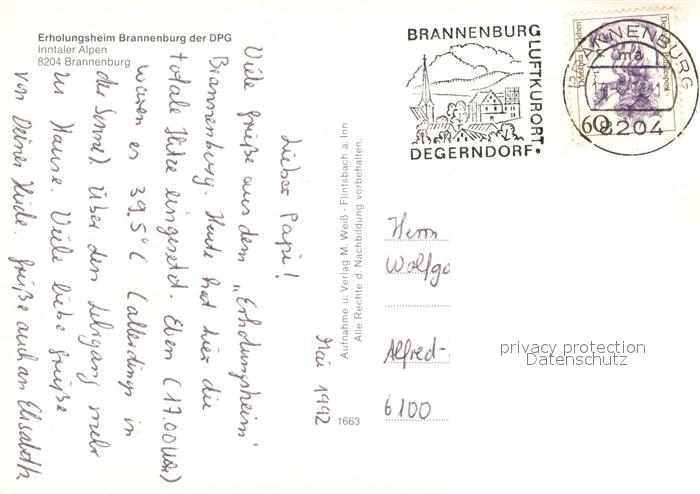 Erholungsheim Brannenburg der DPG
Inntaler Alpen
8204 Brannenburg
Mai 1992
Lieber Papi!
Viele Grüße aus dem „Erholungsheim"
Brannenburg. Heute hat hier die
totale Hitze eingesetzt. Eben (17.00 Uhr)
waren es 39.5°C (allerdings in
der Sonne). Über den Lehrgang mehr
zu Hause. Viele liebe Grüße
von Deiner Heide. Grüße auch an Elisabeth
Aufnahme u. Verlag M. Weiß - Flintsbach a. Inn
Alle Rechte d. Nachbildung vorbehalten.
1663
BRANNENBURG
LUFTKURORT
DEGERNDORF
BRANNENBURG
ma
8204
60
Deutsche Bundespost
Herrn
Wolfga
Alfred-
6100
privacy protection
Datenschutz